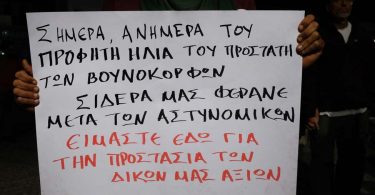 ΣΗΜΕΡΑ, ΑΝΗΜΕΡΑ ΤΟΥ
ΠΡΟΦΗΤΗ ΗΛΙΑ ΤΟΥ ΠΡΟΣΤΑΤΗ
ΤΩΝ ΒΟΥΝΟΚΟΡΦΩΝ
ΣΙΔΕΡΑ ΜΑΣ ΦΕΡΑΝΕ
ΜΕΤΑ ΤΩΝ ΑΣΤΥΝΟΜΙΚΩΝ
ΕΙΜΑΣΤΕ ΕΔΩ ΓΙΑ
ΤΗΝ ΠΡΟΣΤΑΣΙΑ ΤΩΝ
ΔΙΚΩΝ ΜΑΣ ΑΞΙΩΝ